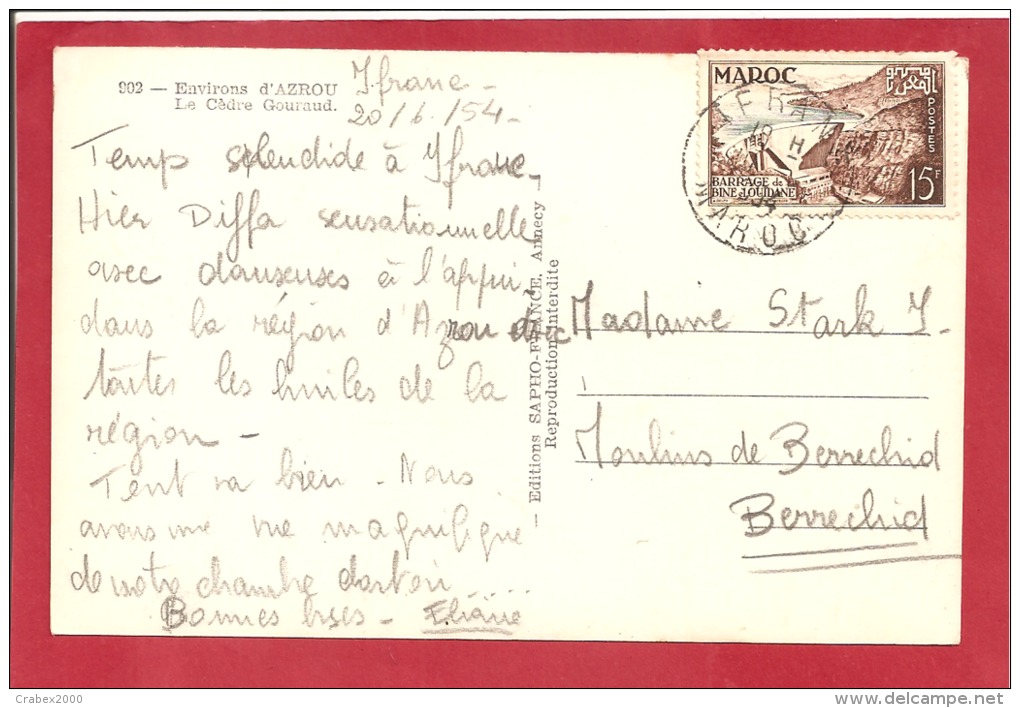 902 — Environs d'AZROU
Le Cèdre Gouraud.
Ifrane -
20/6/54 -
Temp splendide à Ifrane -
Hier Diffa sensationnelle
avec danseuses à l'appui
dans la région d'Azrou avec
toutes les huiles de la
région -
Tout va bien - Nous
avons une vue magnifique
de notre chambre
Bonnes bises - Eliane
— Editions SAPHO-FRANCE, Annecy
Reproduction interdite
MAROC
المغرب
POSTES
BARRAGE de
BINE el OUIDANE
15F
IFRANE
MAROC
Madame Stark J.
Moulins de Berrechid
Berrechid
Crabex2000
delcampe.net